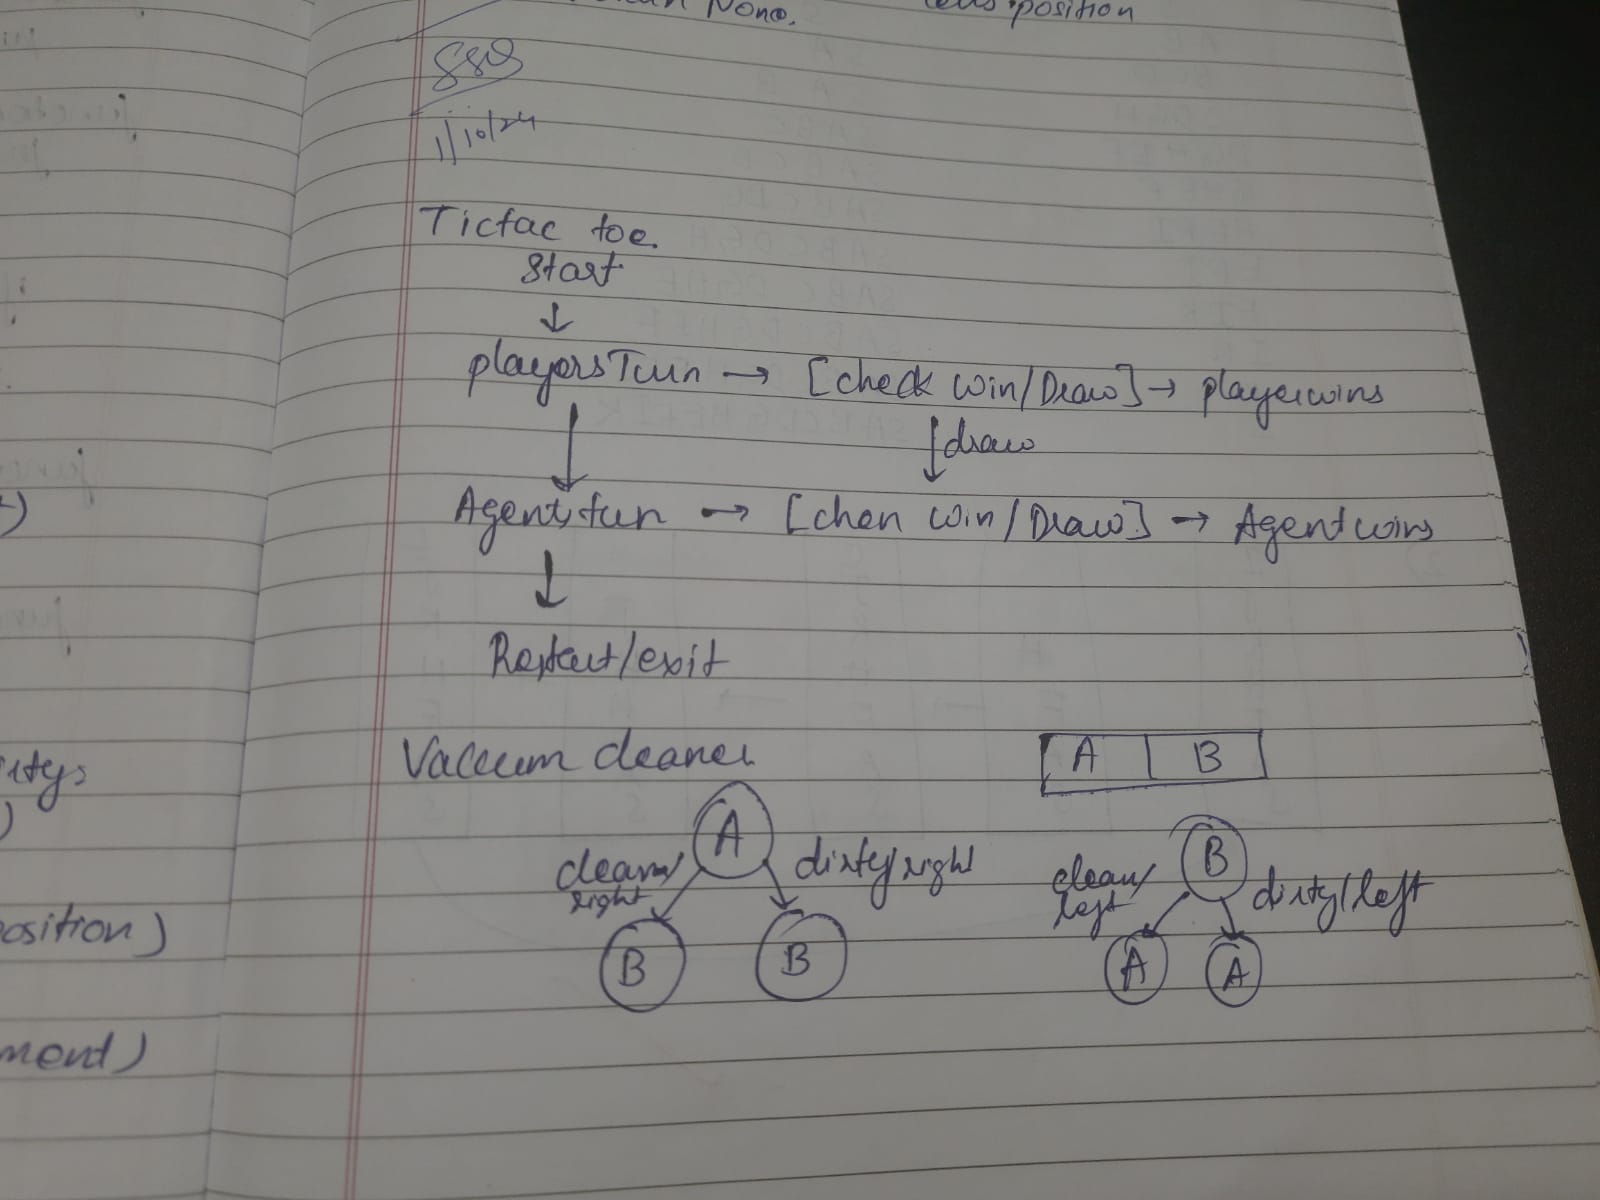 None.
position
1/10/24
Tictac toe.
Start
↓
playersTurn → [check win/Draw] → playerwins
↓ ↓draw
Agentsturn → [chen win/Draw] → Agentwins
↓
Restart/exit
Vaccum cleaner
A B
A
clean/
right
dirty/right
B B
B
clean/
left
dirty/left
A A
osition)
ment)